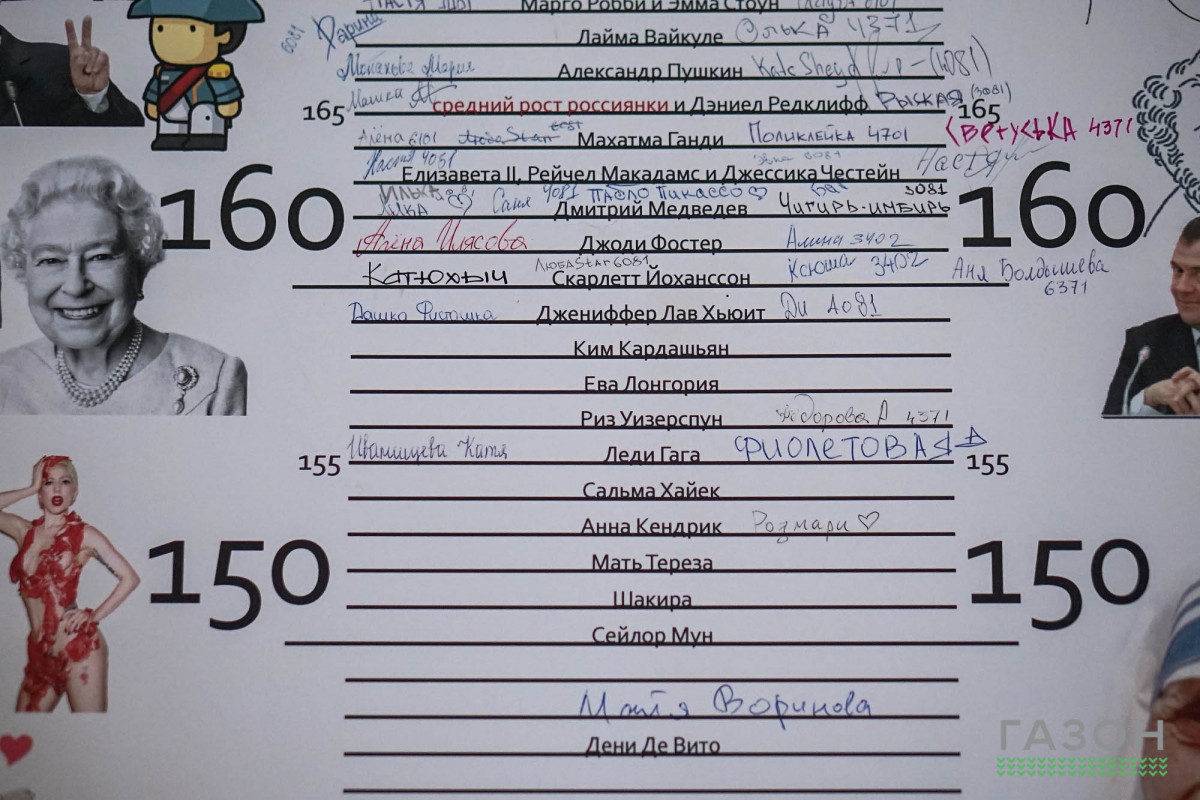 Марго Робби и Эмма Стоун
6081 Дарина Лайма Вайкуле Олька 4371
Монахова Мария Александр Пушкин (4081)
165 Машка средний рост россиянки и Дэниел Редклифф Рыжая (3081) 165
Алёна 6101 Махатма Ганди Поликлейка 4701 Ветуська 4371
4081 Елизавета II, Рейчел Макадамс и Джессика Честейн
160 Илька Лика ♡ Саня 4081 Пабло Пикассо ♡ Дмитрий Медведев Чигирь-имбирь 3081 160
Алёна Илясова Джоди Фостер Алина 3402
Катюхыч ЛюбаStar6081 Скарлетт Йоханссон Ксюша 3402 Аня Болдышева 6371
Дашка Фисташка Джениффер Лав Хьюит Ди 4081
Ким Кардашьян
Ева Лонгория
Риз Уизерспун Фёдорова А 4371
155 Иванищева Катя Леди Гага Фиолетовая 155
Сальма Хайек
Анна Кендрик Розмари ♡
150 Мать Тереза 150
Шакира
Сейлор Мун
Воринова
Дени Де Вито
ГАЗОН